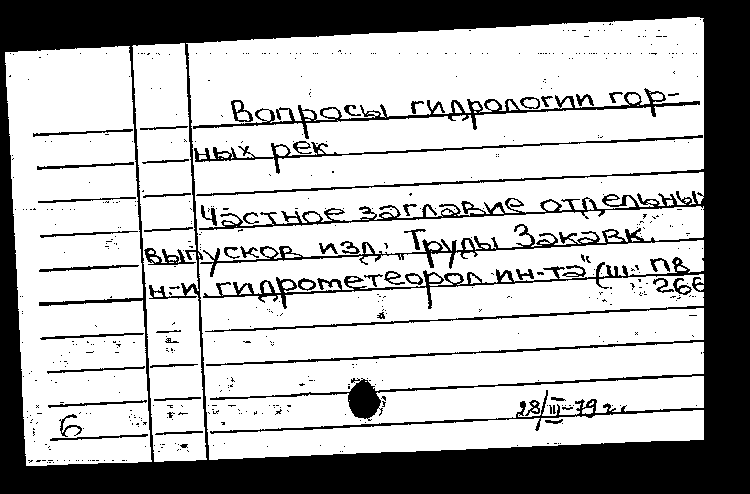 Вопросы гидрологии гор-
ных рек.
Частное заглавие отдельны
выпусков изд: „Труды Закавк.
н-и. гидрометеорол ин-та" (ш: П8
266
28/III-79 г.
6